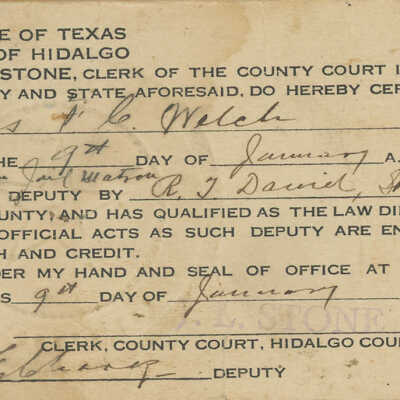 E OF TEXAS
OF HIDALGO
STONE, CLERK OF THE COUNTY COURT I
Y AND STATE AFORESAID, DO HEREBY CER
C. Welch
HE 9th DAY OF January A.
Jail Matron
DEPUTY BY R. T. Daniel, Sh
OUNTY, AND HAS QUALIFIED AS THE LAW DI
OFFICIAL ACTS AS SUCH DEPUTY ARE EN
H AND CREDIT.
DER MY HAND AND SEAL OF OFFICE AT
S 9th DAY OF January
L. STONE
CLERK, COUNTY COURT, HIDALGO COU
DEPUTY